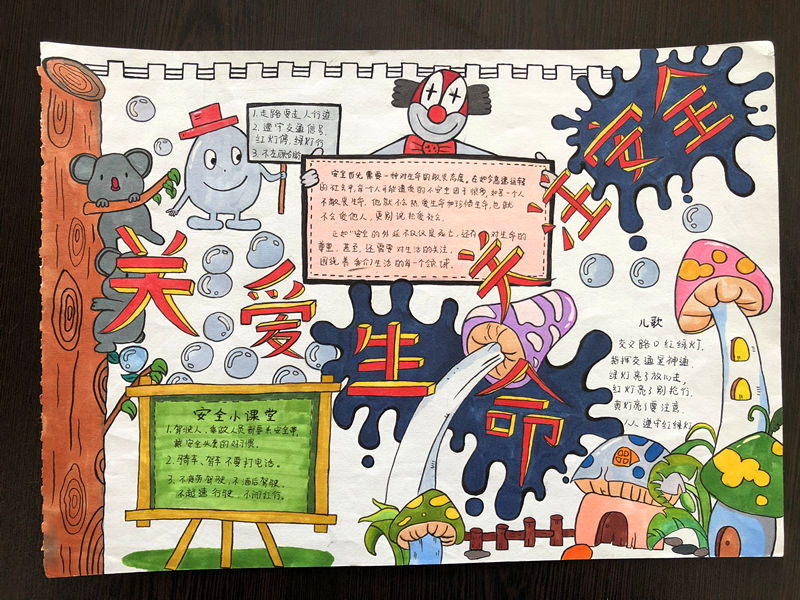 关爱生命
关注安全
1.走路要走人行道
2.遵守交通信号,
红灯停,绿灯行
安全首先需要一种对生命的敬畏态度,在如今高速运转
的社会中,每个人可能遭受的不安全因子很多,如果一个人
不敬畏生命,他就不会热爱生命和珍惜生命,也就
不会爱他人,更别说热爱社会。
安全的外延不仅仅是死亡,还有对生命的
尊重,甚至,还需要对生活的关注,
围绕着我们生活的每一个领域。
安全小课堂
1.驾驶人、乘政人员都要系安全带,
2.骑车、驾车不要打电话。
3.不疲劳驾驶,不酒后驾驶,
不超速行驶,不闯红灯。
儿歌
交叉路口红绿灯,
指挥交通显神通,
绿灯亮了放心走,
红灯亮了别抢行,
黄灯亮了要注意,
人人遵守红绿灯